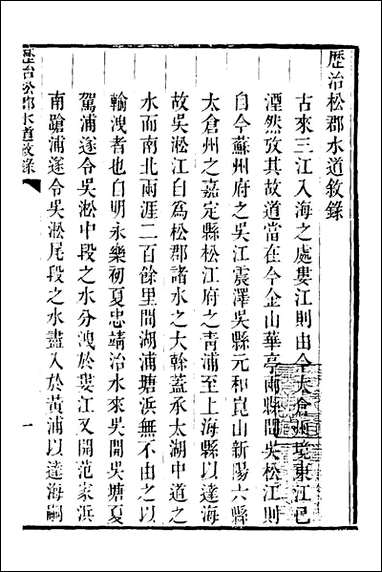 歷治松郡水道敘錄
古來三江入海之處婁江則由今太倉州境東江已
湮然攷其故道當在今金山華亭兩縣間吳松江則
自今蘇州府之吳江震澤吳縣元和崑山新陽六縣
太倉州之嘉定縣松江府之青浦至上海縣以達海
故吳淞江白爲松郡諸水之大幹蓋承太湖中道之
水而南北兩涯二百餘里間湖浦塘浜無不由之以
輸洩者也自明永樂初夏忠靖治水來吳開吳塘夏
駕浦遂令吳淞中段之水分洩於婁江又開范家浜
南蹌浦遂令吳淞尾段之水盡入於黃浦以達海嗣
歷治松郡水道敘錄
一